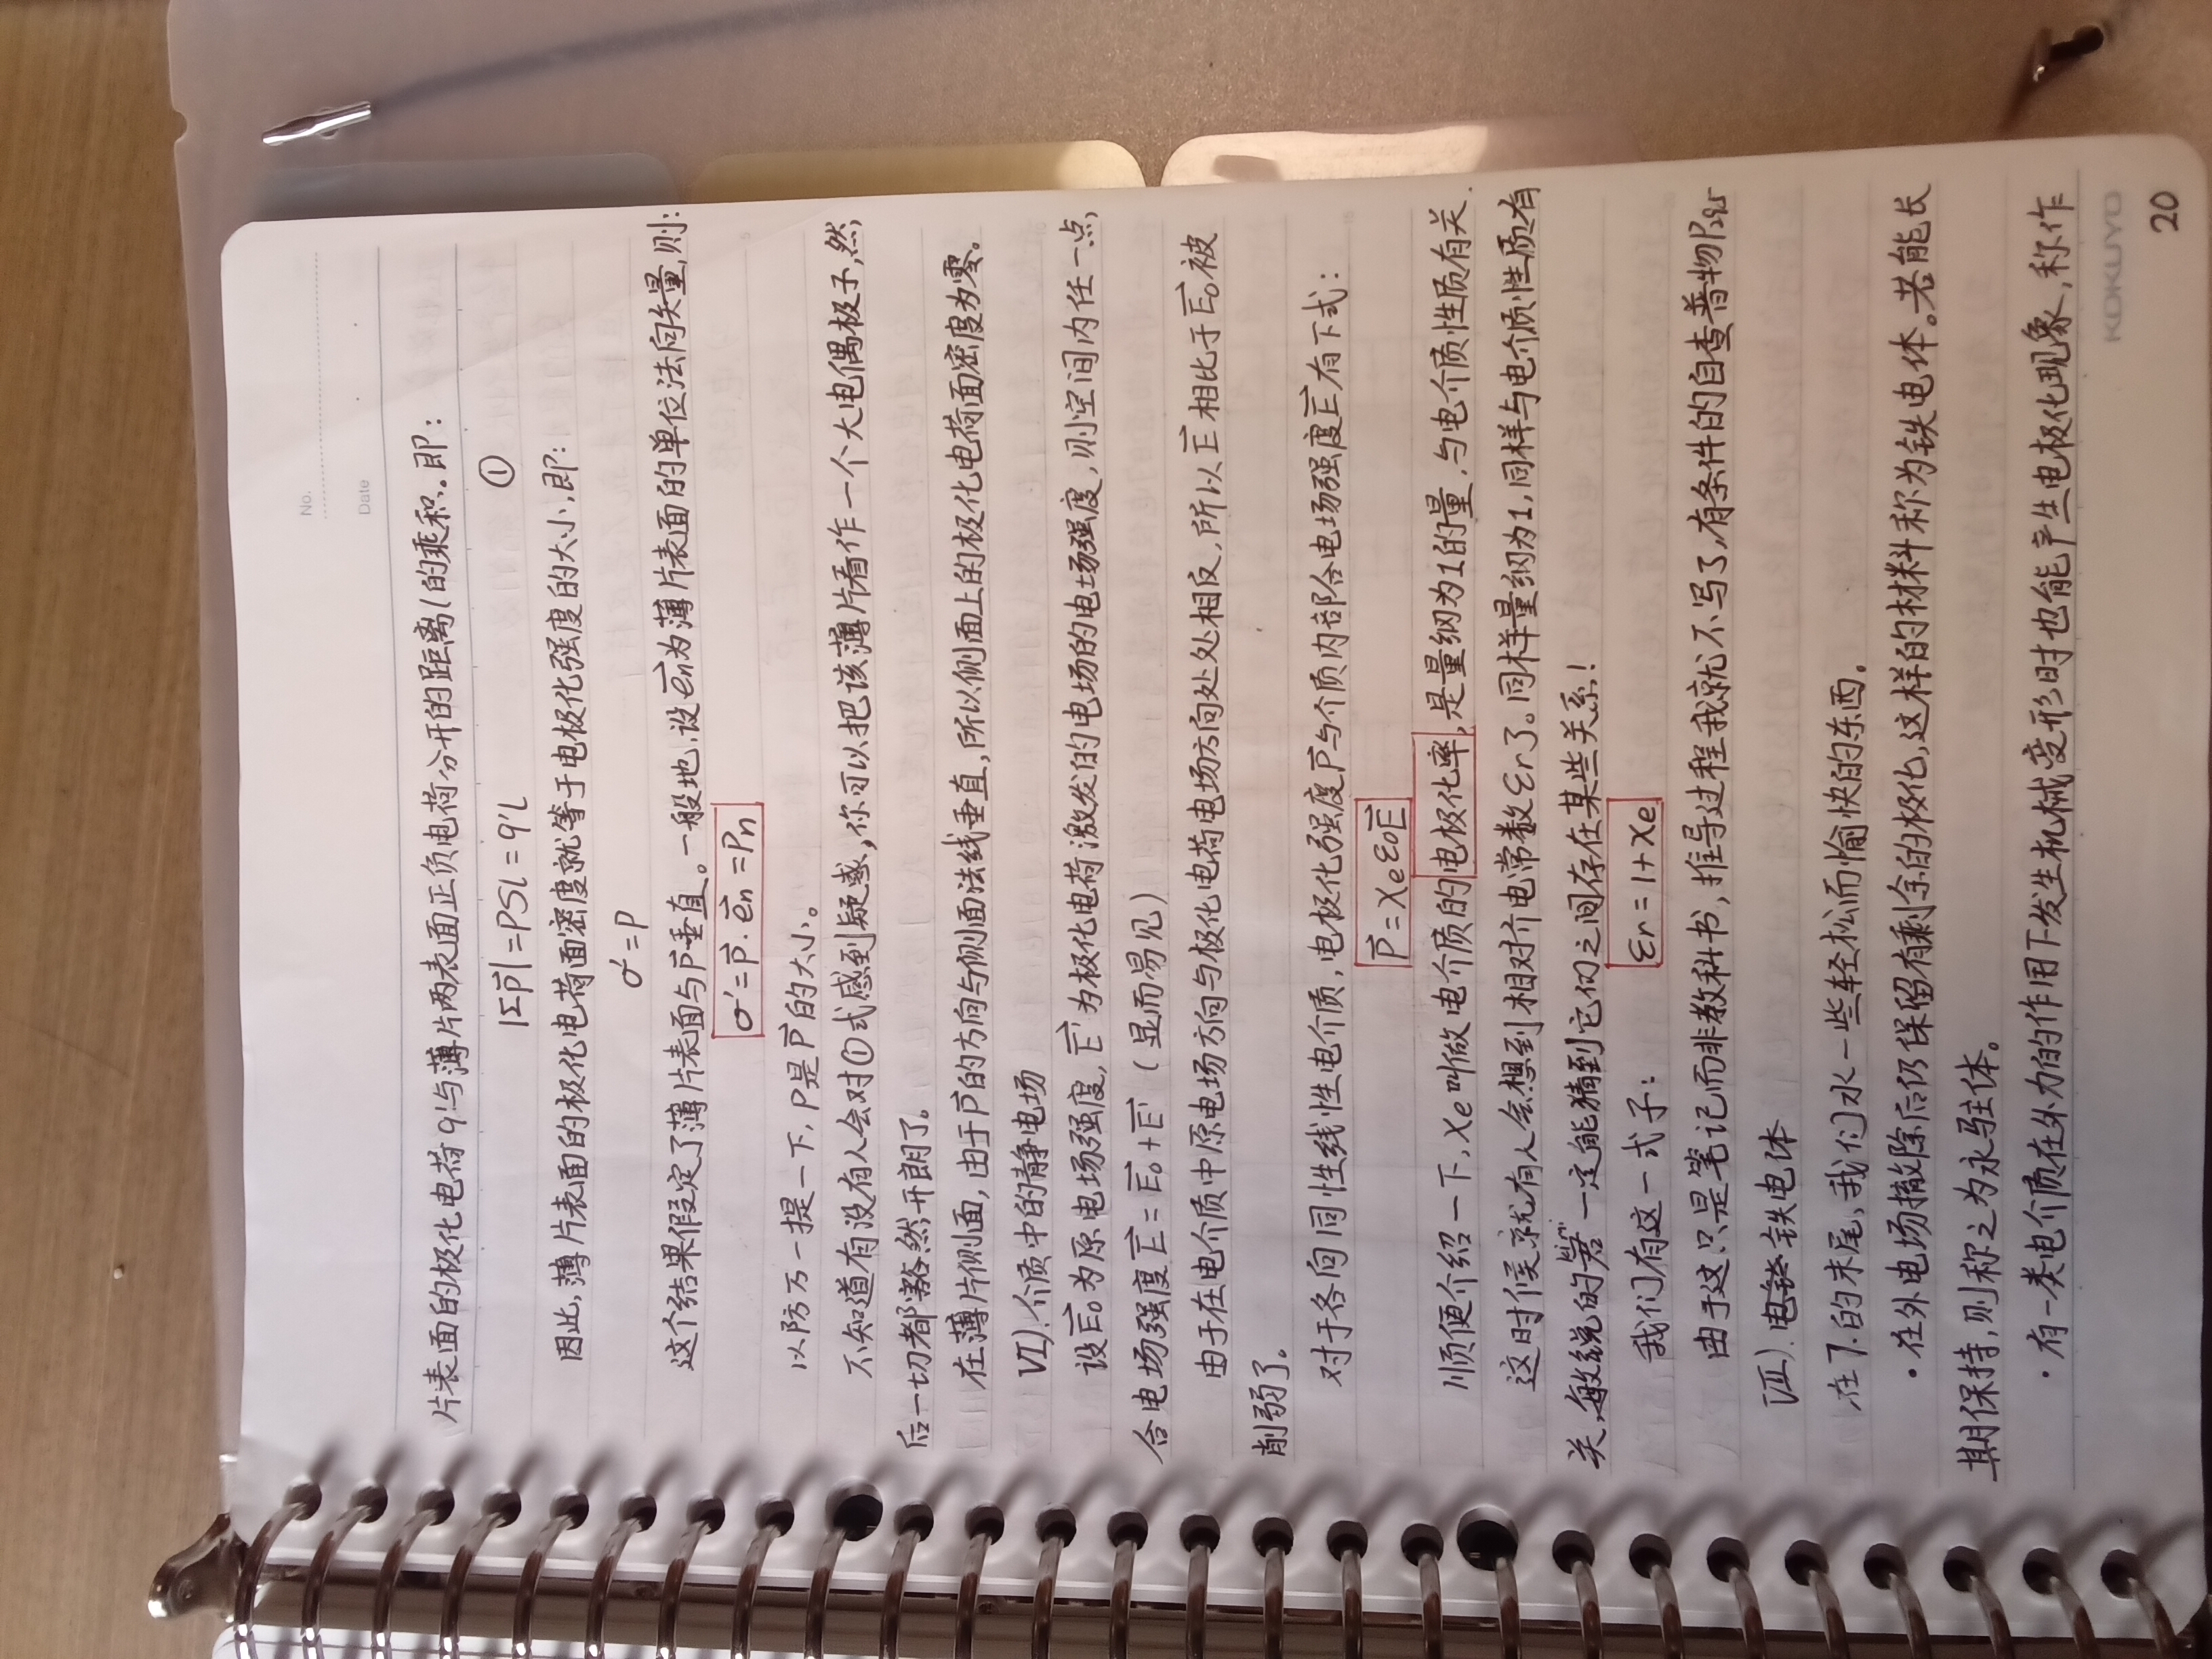 No.
Date
片表面的极化电荷q'与薄片两表面正负电荷分开的距离l的乘积。即:
|Σp⃗|=PSl=q'l ①
因此,薄片表面的极化电荷面密度就等于电极化强度的大小,即:
σ'=P
这个结果假定了薄片表面与P⃗垂直。一般地,设e⃗n为薄片表面的单位法向矢量,则:
σ'=P⃗·e⃗n=Pn
以防万一提一下,P是P⃗的大小。
不知道有没有人会对①式感到疑惑,你可以把该薄片看作一个大电偶极子,然
后一切都豁然开朗了。
在薄片侧面,由于P⃗的方向与侧面法线垂直,所以侧面上的极化电荷面密度为零。
VI).介质中的静电场
设E⃗₀为原电场强度,E⃗'为极化电荷激发的电场的电场强度,则空间内任一点
合电场强度E⃗=E⃗₀+E⃗'(显而易见)
由于在电介质中原电场方向与极化电荷电场方向处处相反,所以E⃗相比于E⃗₀被
削弱了。
对于各向同性线性电介质,电极化强度P⃗与介质内部合电场强度E⃗有下式:
P⃗=χeε₀E⃗
顺便介绍一下,χe叫做电介质的电极化率,是量纲为1的量,与电介质性质有关.
这时候就有人会想到相对介电常数εr了。同样量纲为1,同样与电介质性质有
关,敏锐的 一定能猜到它们之间存在某些关系!
我们有这一式子:
εr=1+χe
由于这只是笔记而非教科书,推导过程我就不写了,有条件的自查普物P
VII).铁电体
在7.的末尾,我们水一些轻松而愉快的东西。
·在外电场撤除后仍保留有剩余的极化,这样的材料称为铁电体。若能长
期保持,则称之为永驻体。
·有一类电介质在外力的作用下发生机械变形时也能产生电极化现象,称作
KOKUYO
20